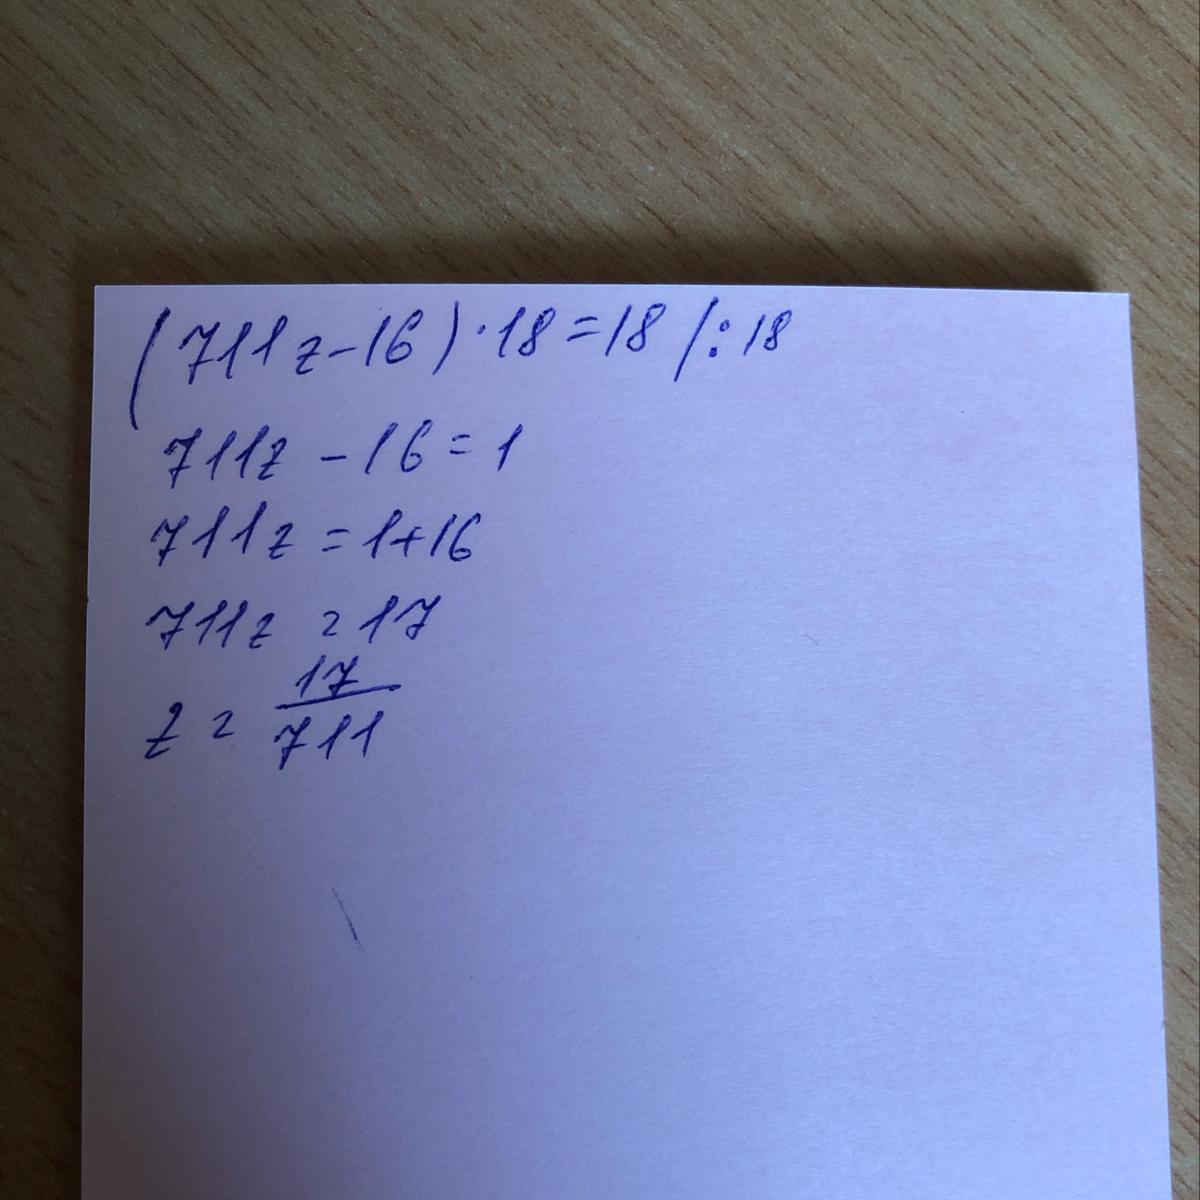 (711z-16)·18=18 |:18
711z-16=1
711z=1+16
711z=17
z=17/711